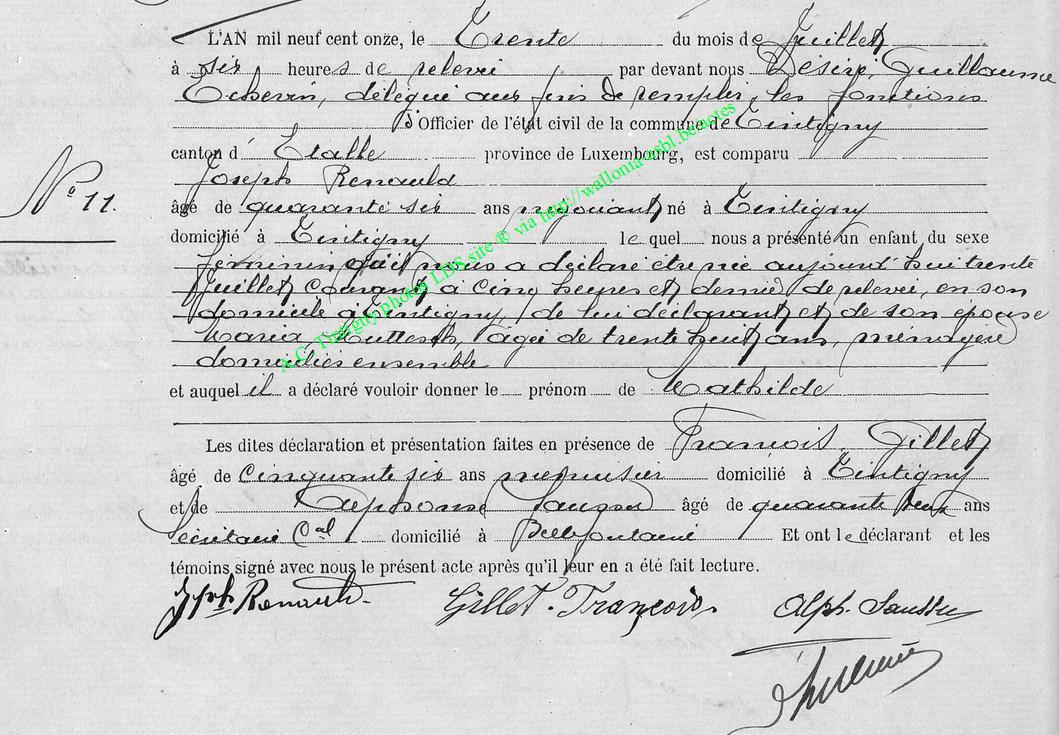 L'AN mil neuf cent onze, le Trente du mois de Juillet
à six heures de relevée par devant nous Désiré, Guillaume
Echevin, délégué aux fins de remplir les fonctions
d'Officier de l'état civil de la commune de Tintigny
canton d' Etalle province de Luxembourg, est comparu
Joseph Renauld
N° 11.
âgé de quarante six ans négociant né à Tintigny
domicilié à Tintigny lequel nous a présenté un enfant du sexe
féminin qu'il nous a déclaré être née aujourd'hui trente
Juillet courant à cinq heures et demie de relevée, en son
domicile à Tintigny, de lui déclarant et de son épouse
Maria, âgée de trente huit ans, ménagère
domiciliés ensemble
et auquel il a déclaré vouloir donner le prénom de Mathilde
Les dites déclaration et présentation faites en présence de François Gillet
âgé de cinquante six ans menuisier domicilié à Tintigny
et de Alphonse Saussu âgé de quarante deux ans
Secrétaire Cal domicilié à Bellefontaine Et ont le déclarant et les
témoins signé avec nous le présent acte après qu'il leur en a été fait lecture.
Jph Renauld. Gillet. François Alph. Saussu
A.C. Tintigny photos LDS site ® via http://wallonia-asbl.be/notes